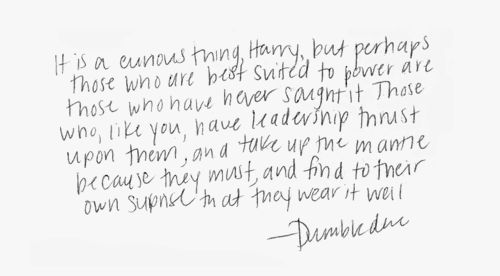 It is a curious thing, Harry, but perhaps
those who are best suited to power are
those who have never sought it Those
who, like you, have leadership thrust
upon them, and take up the mantle
because they must, and find to their
own suprise that they wear it well
—Dumbledore